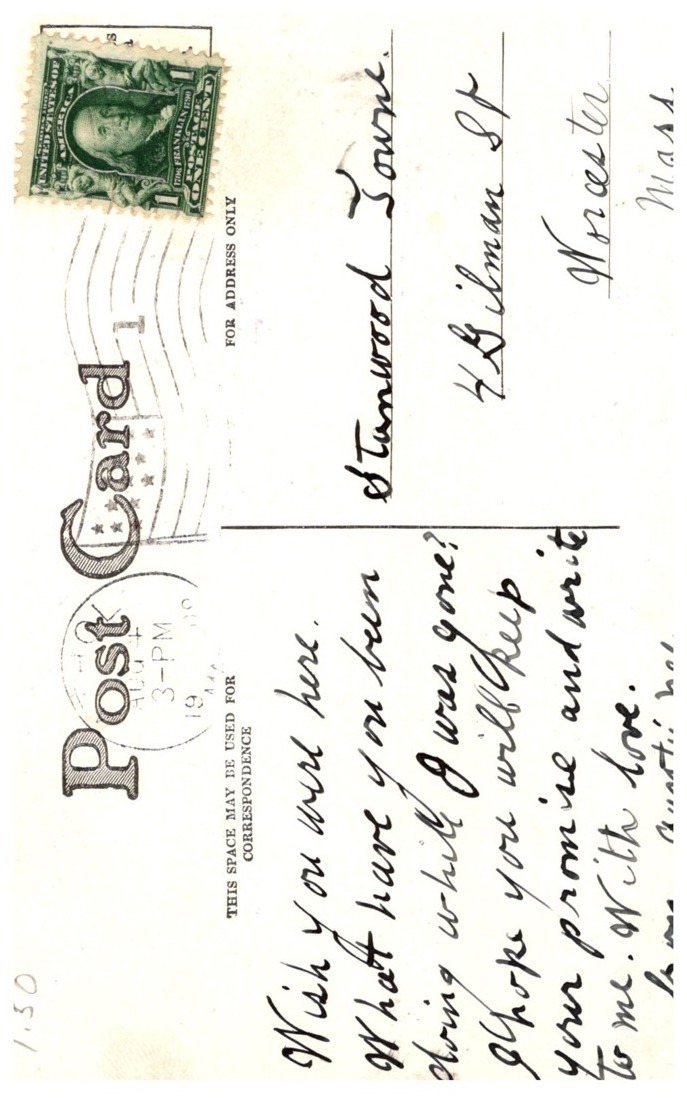 1.50
Post Card
THIS SPACE MAY BE USED FOR
CORRESPONDENCE
FOR ADDRESS ONLY
UNITED STATES OF
AMERICA
FRANKLIN
POSTAGE
ONE CENT
1 1
3-PM
19
1
Wish you were here.
What have you been
doing while I was gone?
I hope you will keep
your promise and write
to me. With love.
Stanwood Towne.
4 Gilman St
Worcester
Mass.